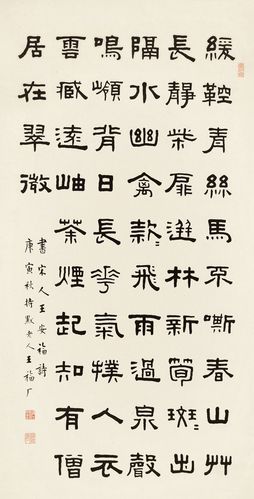 緩鞚青絲馬不嘶春山艸
長靜柴扉逬林新筍斑〻出
隔水幽禽款〻飛雨過泉聲
鳴嶺背日長華氣撲人衣
雲臧遠岫茶煙起知有僧
居在翠微
書宋人王安福詩
庚寅秋持默老人王福厂